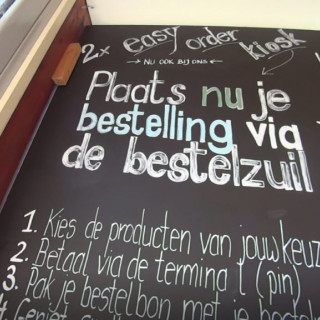 2x easy order kiosk
→ NU OOK BIJ ONS ←
Plaats nu je
bestelling via
de bestelzuil
1. Kies de producten van jouw keuz
2. Betaal via de termina l (pin)
3. Pak je bestelbon met je bestel
Geniet